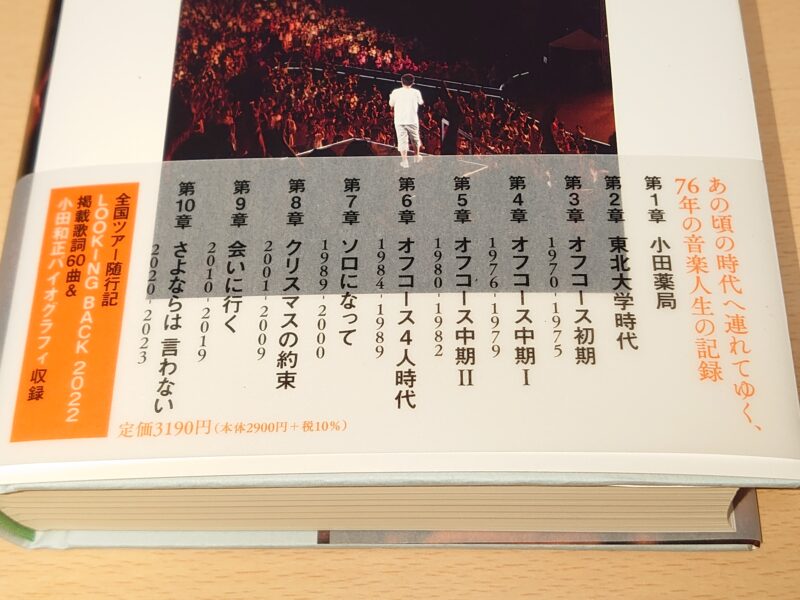 あの頃の時代へ連れてゆく、
76年の音楽人生の記録
第1章 小田薬局
第2章 東北大学時代
第3章 オフコース初期
1970-1975
第4章 オフコース中期Ⅰ
1976-1979
第5章 オフコース中期Ⅱ
1980-1982
第6章 オフコース4人時代
1984-1989
第7章 ソロになって
1989-2000
第8章 クリスマスの約束
2001-2009
第9章 会いに行く
2010-2019
第10章 さよならは 言わない
2020-2023
全国ツアー随行記
LOOKING BACK 2022
掲載歌詞60曲&
小田和正バイオグラフィ収録
定価3190円(本体2900円+税10%)